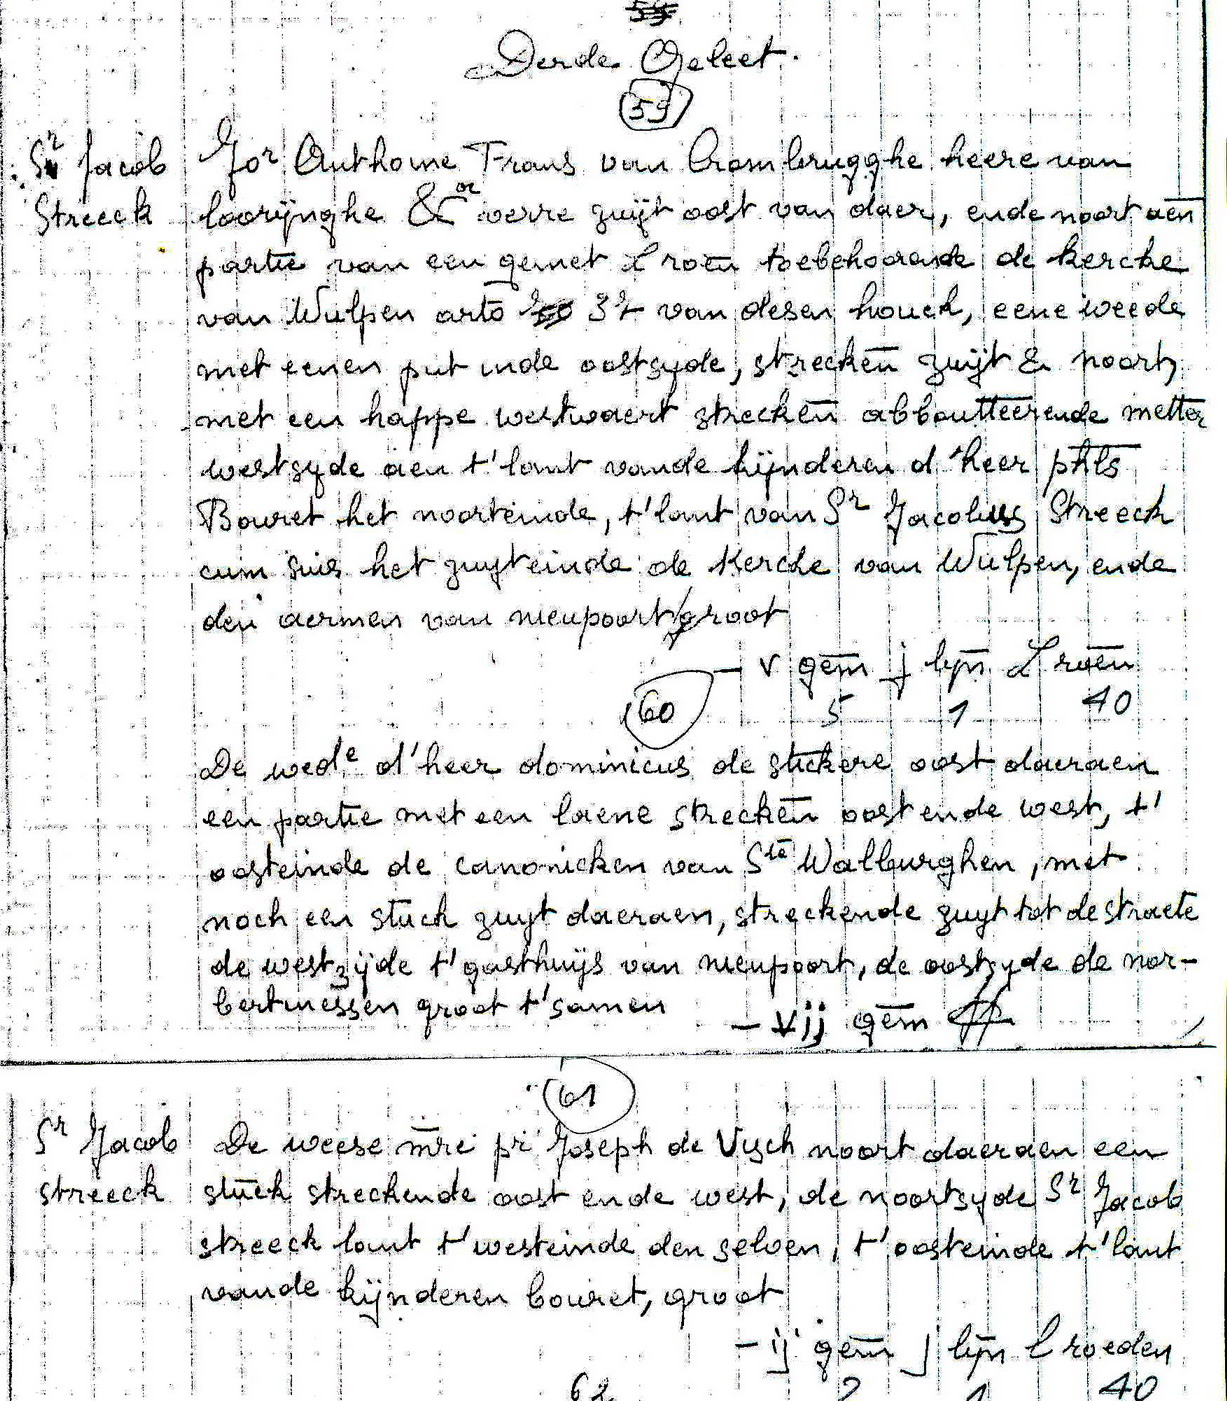 Derde Geleet.
59
Sr Jacob
Streeck
Jor Anthoine Frans van Crombrugghe heere van
loorijnghe &c verre zuijt oost van daer, ende noort aen
partie van een gemet L roen toebehoorende de kercke
van Wulpen arto 32 van desen houck, eene weede
met eenen put inde oostsyde, strecken zuijt & noort,
met een happe westwaert strecken abboutteerende metter
westsyde aen t'lant vande kijnderen d'heer phls
Bouret het noorteinde, t'lant van Sr Jacobus Streeck
cum suis het zuyteinde de Kercke van Wulpen, ende
den aermen van nieupoort groot
– v gem j lyn L roen
5 1 40
60
De wede d'heer dominicus de stickere oost daeraen
een partie met een laene strecken oost ende west, t'
oosteinde de canonicken van Ste Walburghen, met
noch een stuck zuyt daeraen, streckende zuyt tot de straete
de westzijde t'gasthuijs van nieupoort, de oostzyde de nor-
bertinessen groot t'samen
– vij gem
61
Sr Jacob
streeck
De weese mre pr Joseph de Vysch noort daeraen een
stuck streckende oost ende west, de noortsyde Sr Jacob
streeck lant t'westeinde den selven, t'oosteinde t'lant
vande kijnderen bouret, groot
– ij gem j lyn L roeden
2 1 40
62